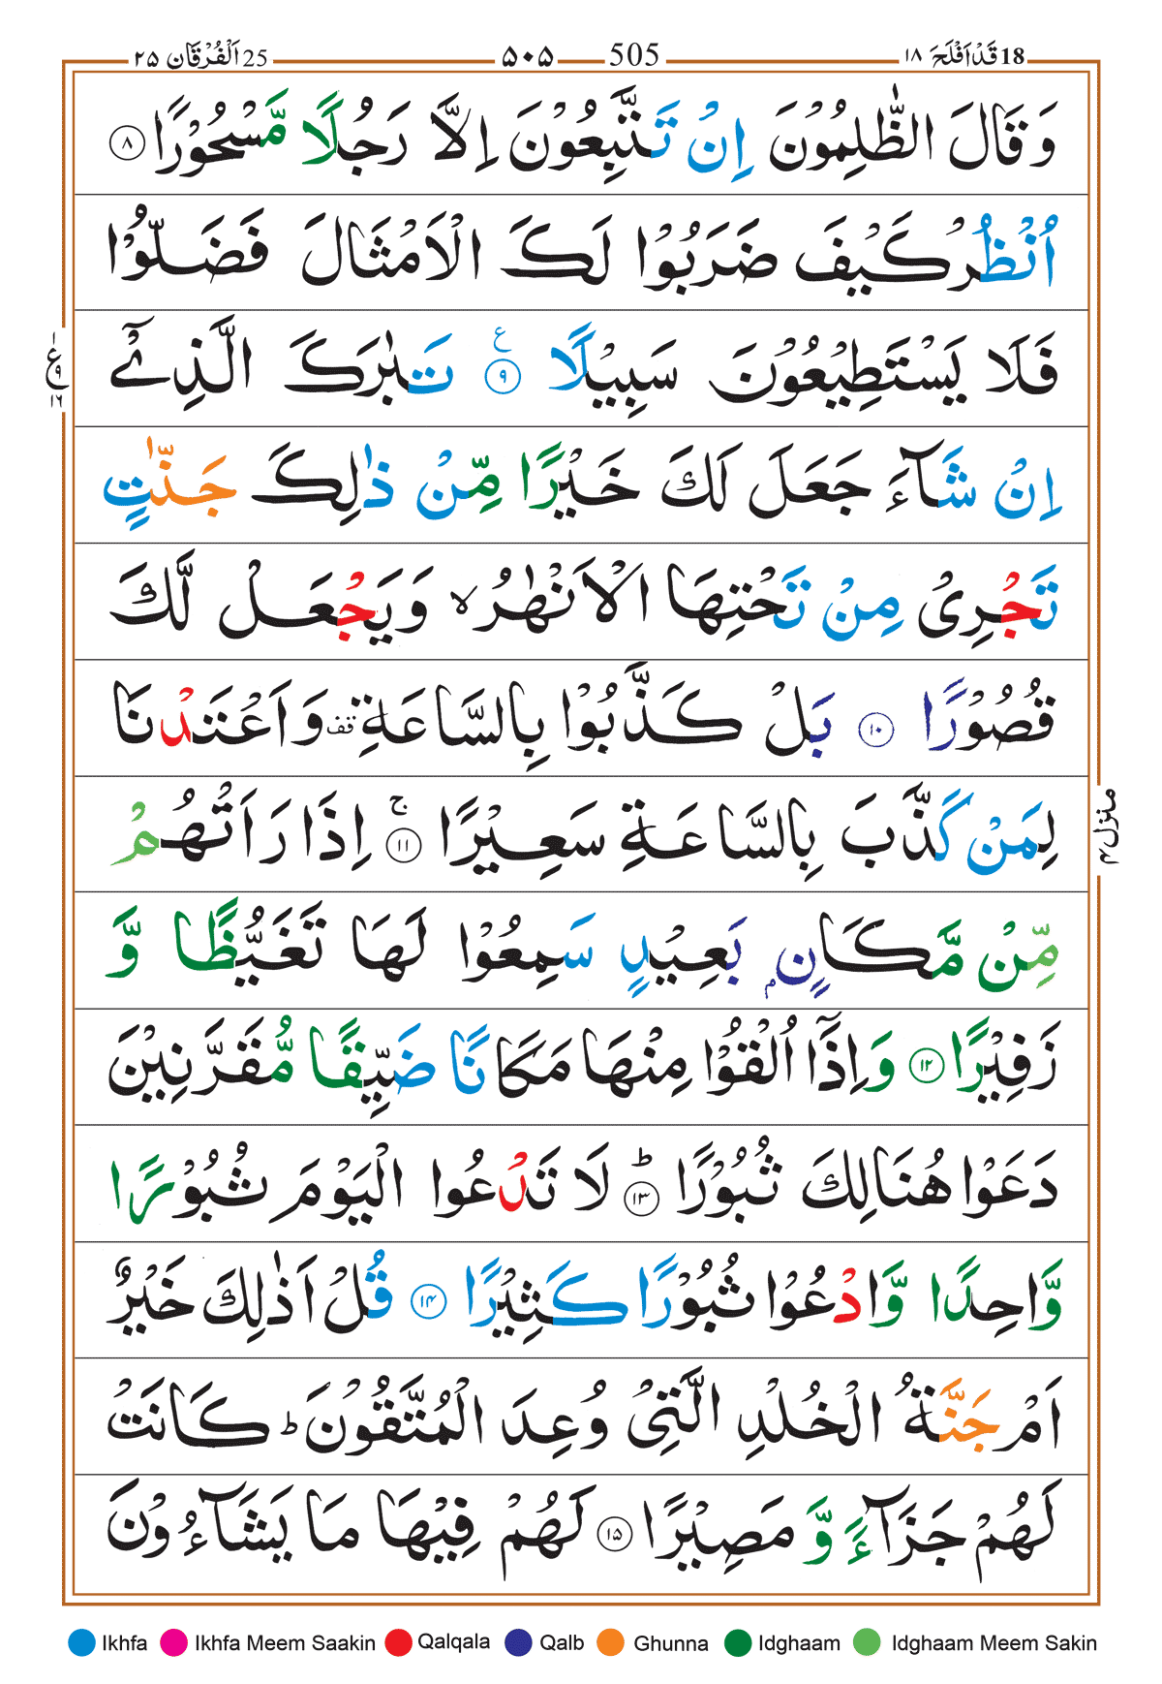 18 قَدْ اَفْلَحَ ١٨ 505 ٥٠٥ 25 اَلْفُرْقَان ٢٥
وَ قَالَ الظّٰلِمُوْنَ اِنْ تَتَّبِعُوْنَ اِلَّا رَجُلًا مَّسْحُوْرًا ٨
اُنْظُرْ كَيْفَ ضَرَبُوْا لَكَ الْاَمْثَالَ فَضَلُّوْا
فَلَا يَسْتَطِيْعُوْنَ سَبِيْلًا ٩ ع تَبٰرَكَ الَّذِيْٓ
ع ٩ ١٦
اِنْ شَآءَ جَعَلَ لَكَ خَيْرًا مِّنْ ذٰلِكَ جَنّٰتٍ
تَجْرِيْ مِنْ تَحْتِهَا الْاَنْهٰرُ ۙ وَيَجْعَلْ لَّكَ
قُصُوْرًا ١٠ بَلْ كَذَّبُوْا بِالسَّاعَةِ قف وَ اَعْتَدْنَا
لِمَنْ كَذَّبَ بِالسَّاعَةِ سَعِيْرًا ١١ ج اِذَا رَاَتْهُمْ
منزل ٤
مِّنْ مَّكَانٍۭ بَعِيْدٍ سَمِعُوْا لَهَا تَغَيُّظًا وَّ
زَفِيْرًا ١٢ وَاِذَآ اُلْقُوْا مِنْهَا مَكَانًا ضَيِّقًا مُّقَرَّنِيْنَ
دَعَوْا هُنَالِكَ ثُبُوْرًا ١٣ ط لَا تَدْعُوا الْيَوْمَ ثُبُوْرًا
وَّاحِدًا وَّادْعُوْا ثُبُوْرًا كَثِيْرًا ١٤ قُلْ اَذٰلِكَ خَيْرٌ
اَمْ جَنَّةُ الْخُلْدِ الَّتِيْ وُعِدَ الْمُتَّقُوْنَ ط كَانَتْ
لَهُمْ جَزَآءً وَّ مَصِيْرًا ١٥ لَهُمْ فِيْهَا مَا يَشَآءُوْنَ
Ikhfa Ikhfa Meem Saakin Qalqala Qalb Ghunna Idghaam Idghaam Meem Sakin